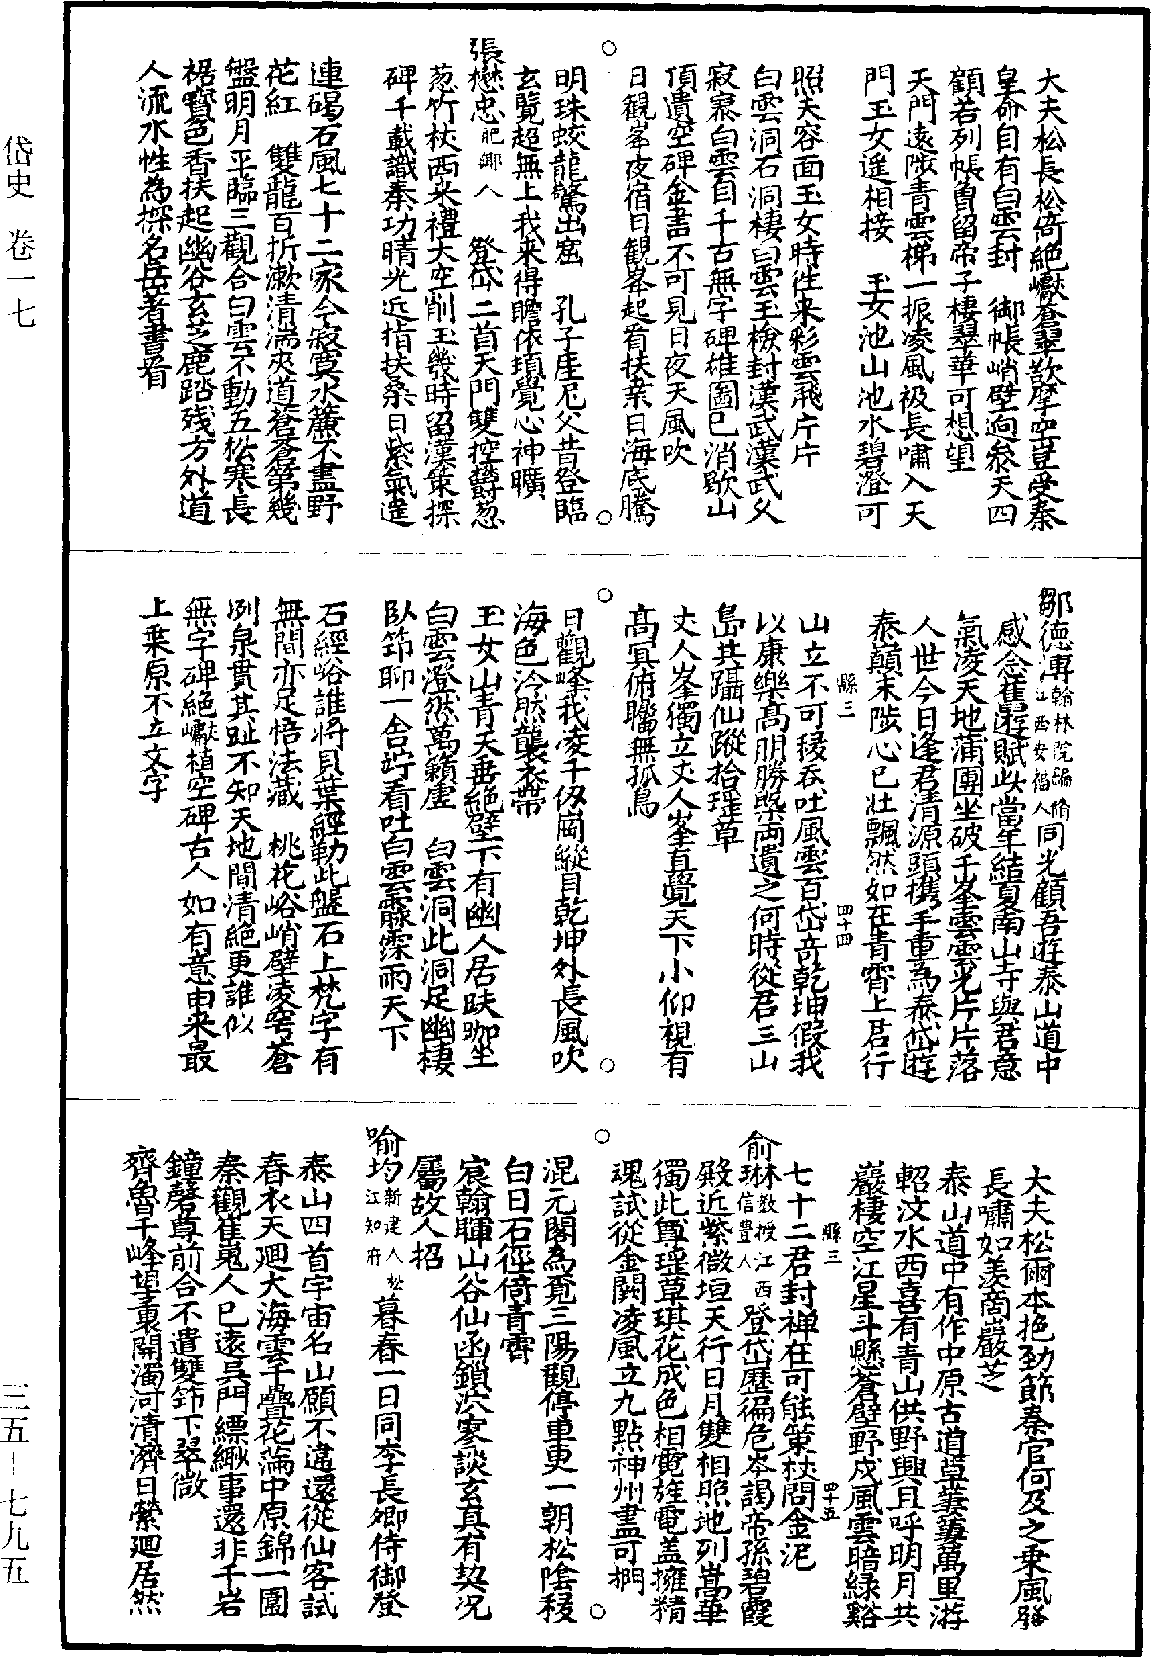 岱史 卷一七
三五—七九五
大夫松長松倚絶巘蒼翠欲摩空豈受秦
皇命自有白雲封 御帳峭壁逈叅天四
顧若列帳曾留帝子棲翠華可想望
天門遠陟青雲梯一振凌風袂長嘯入天
門玉女遥相接 玉女池山池水碧澄可
照夫容面玉女時往来彩雲飛片片
白雲洞石洞棲白雲玉檢封漢武漢武父
寂寞白雲自千古無字碑雄圖已消歇山
頂遺空碑金書不可見日夜天風吹
日觀峯夜宿日觀峯起看扶桒日海底騰
○
明珠蛟龍驚出窟 孔子崖尼父昔登臨
玄覽超無上我来得瞻依頊覺心神曠
張懋忠肥鄉人 登岱二首天門雙控鬱葱
葱竹杖西来禮大空削玉幾時留漢策探
碑千載識秦功晴光近指扶桑日紫氣遥
連碣石風七十二家今寂寞水簾不盡野
花紅 雙龍百折漱清湍夾道蒼蒼第幾
盤明月平臨三觀合白雲不動五松寒長
裾寶色香扶起幽谷玄芝鹿踏残方外道
人流水性為探名岳著書看
鄒德溥翰林院編脩江西安福人同光顧吾遊泰山道中
感念舊遊賦此當年結夏南山寺與君意
氣凌天地蒲團坐破千峯雲雲光片片落
人世今日逢君清源頭携手重為泰岱遊
泰巔未陟心已壯飄然如在青霄上君行
縣三 四十四
山立不可稷吞吐風雲百岱竒乾坤假我
以康樂髙朋勝槩兩遺之何時從君三山
島共躡仙蹤拾瑶草
丈人峯獨立丈人峯直覺天下小仰視有
髙冥俯矙無孤鳥
○
日觀峰我凌千仭崗縱目乾坤外長風吹
海色泠然襲衣帶
玉女山青天垂絶壁下有幽人居趺跏坐
白雲澄然萬籟虚 白雲洞此洞足幽棲
臥笻聊一舍竚看吐白雲霢霂雨天下
石經峪誰將貝葉經勒此盤石上梵字有
無間亦足悟法藏 桃花峪峭壁凌穹蒼
冽泉貫其趾不知天地間清絶更誰似
無字碑絶巘植空碑古人如有意由来最
上乗原不立文字
大夫松爾本抱勁節秦官何及之乗風發
長嘯如羡商巖芝
泰山道中有作中原古道草萋萋萬里游
軺汶水西喜有青山供野興且呼明月共
巖棲空江星斗懸蒼壁野戍風雲暗緑谿
縣三 四十五
七十二君封禅在可能策杖問金泥
俞琳教授江西信豊人 登岱歴徧危岑謁帝孫碧霞
殿近紫微垣天行日月雙相照地列嵩華
獨此尊瑶草琪花成色相霓旌電盖擁精
魂試從金闕凌風立九點神州盡可捫
○
混元閣為覓三陽觀停車更一朝松陰稷
白日石徑倚青霄
宸翰暉山谷仙函鎖泬寥談玄真有契况
屬故人招
喻均新建人松江知府 暮春一日同李長卿侍御登
泰山四首宇宙名山願不違還從仙客試
春衣天迴大海雲千疊花滿中原錦一圍
秦觀崔嵬人已遠吳門縹緲事還非千岩
鐘磬尊前合不遣雙笻下翠微
齊魯千峰望裏開濁河清濟日縈迴居然